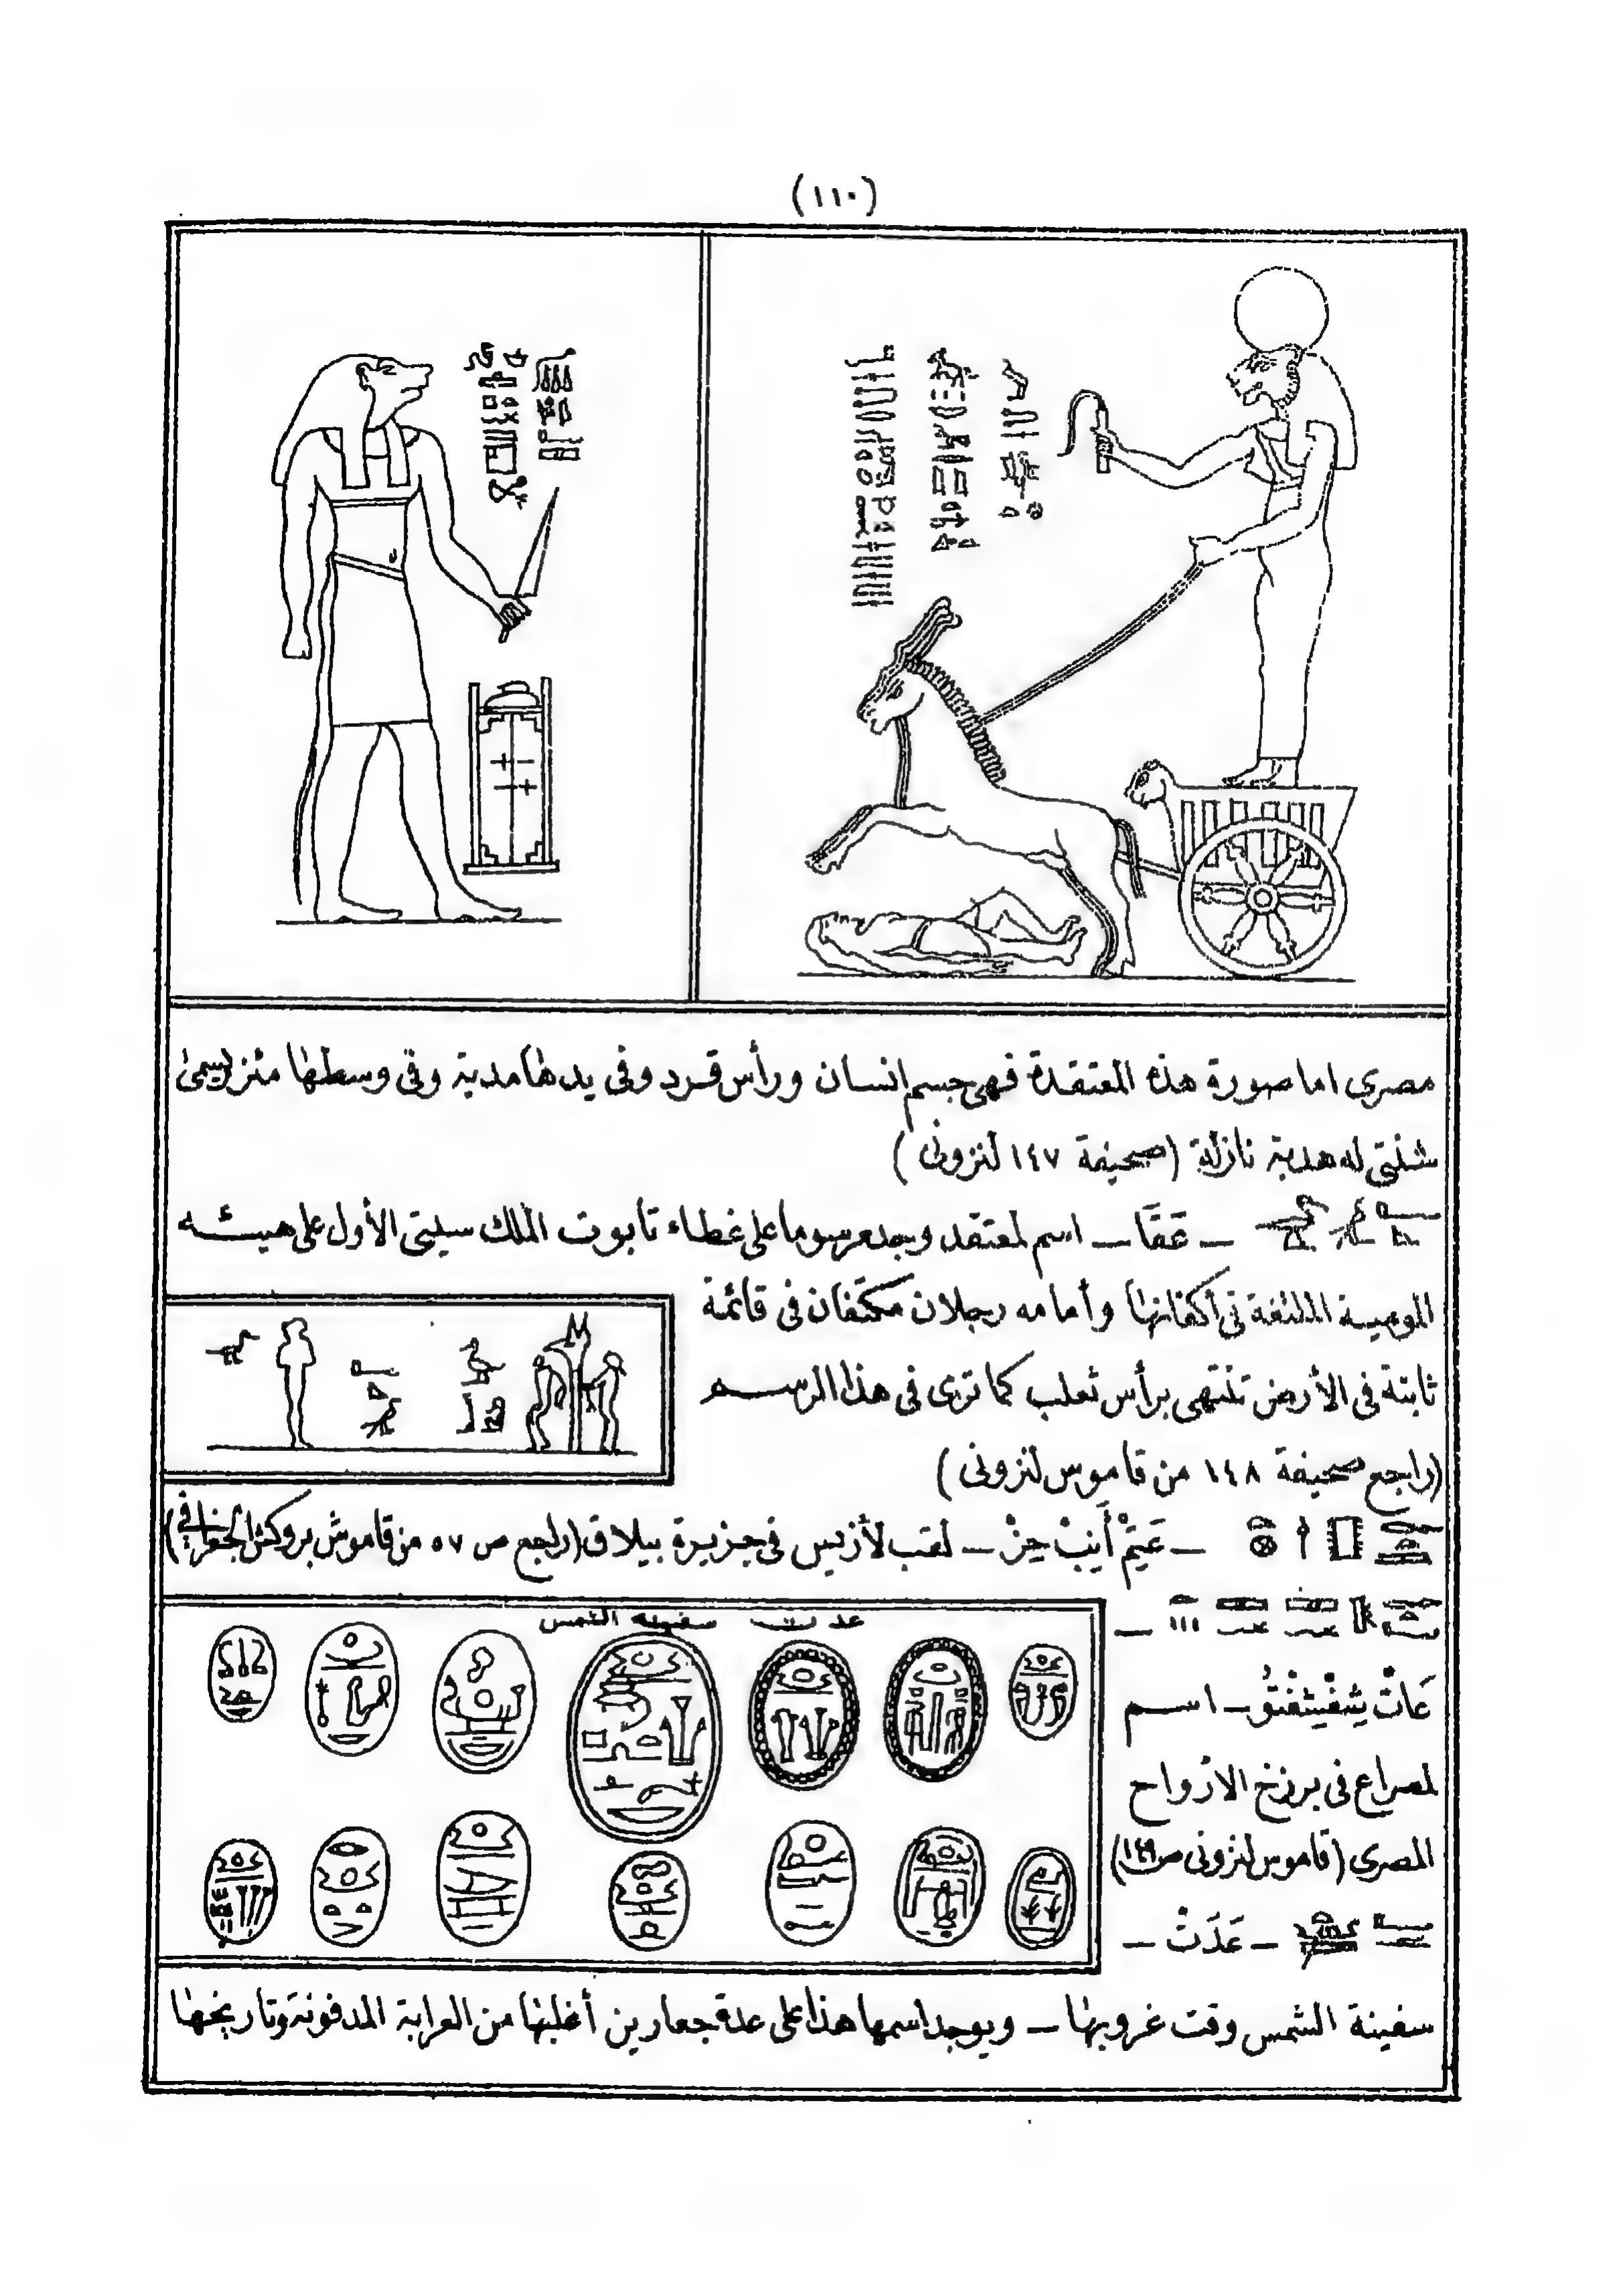 (١١٠)
مصرى اما صورة هذه المعتقدة فهى جسم انسان ورأس قرد وفى يدها مدية وفى وسطها مئزر يسمى
شنتى له هدبة نازلة (صحيفة ١٤٧ لنزونى)
ـ عَقَّا ـ اسم لمعتقد وجد مرسوما على غطاء تابوت الملك سيتى الأول على هيئـــة
الموميـة الملتفة فى أكفانها وأمامه رجلان مكتفان فى قائمة
ثابتة فى الأرض تنتهى برأس ثعلب كما ترى فى هذا الرســـم
(راجع صحيفة ١٤٨ من قاموس لنزونى)
ـ عَيْتِمْ أَنِبْ حِزْ ـ لقب لأزيس فى جزيرة بيلاق (راجع ص ٥٧ من قاموس بروكش الجغرافى)
عدت سفينة الشمس
ـ
عَاتْ يِشفْيِتفْتُو ـ اســـم
لمصراع فى برزخ الارواح
المصرى (قاموس لنزونى ص ١٤٩)
ـ عَدَتْ ـ
سفينة الشمس وقت غروبها ـ ويوجد اسمها هذا على عدة جعارين أغلبها من العرابة المدفونة وتاريخها